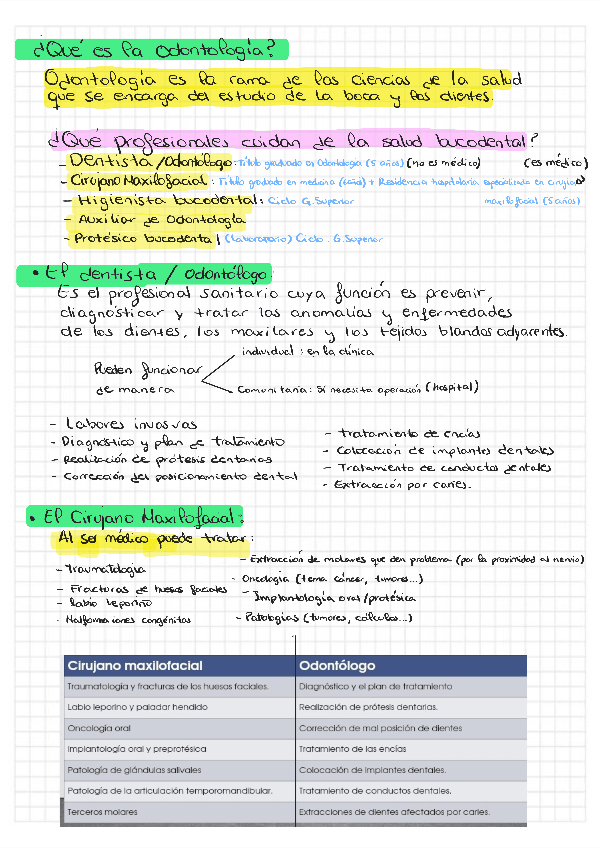 ¿Qué es la Odontología?
Odontología es la rama de las ciencias de la salud
que se encarga del estudio de la boca y los dientes.
¿Qué profesionales cuidan de la salud bucodental?
- Dentista/Odontólogo: Título graduado en Odontología (5 años) (no es médico) (es médico)
- Cirujano Maxilofacial: Título graduado en medicina (6 años) + Residencia hospitalaria especializada en cirugía
- Higienista bucodental: Ciclo G. Superior maxilofacial (5 años)
- Auxiliar de Odontología
- Protésico bucodental (Laboratorio) Ciclo G. Superior
• El dentista / odontólogo:
Es el profesional sanitario cuya función es prevenir,
diagnósticar y tratar las anomalías y enfermedades
de los dientes, los maxilares y los tejidos blandos adyarentes.
individual: en la clínica
Pueden funcionar
de manera
Comunitaria: Si necesita operación (hospital)
- Labores invasvas
- Diagnóstico y plan de tratamiento
- Realización de prótesis dentarias
- Corrección del posicionamiento dental
- Tratamiento de encías
- Colocación de implantes dentales
- Tratamiento de conductos dentales
- Extracción por caries.
• El Cirujano Maxilofacial:
Al ser médico puede tratar:
- Traumatología
- Fracturas de huesos faciales
- Labio leporino
- Malformaciones congénitas
- Extracción de molares que den problema (por la proximidad al nervio)
- Oncología (tema cáncer, tumores...)
- Implantología oral/protésica
- Patologías (tumores, cálculos...)
Cirujano maxilofacial Odontólogo
Traumatología y fracturas de los huesos faciales. Diagnóstico y el plan de tratamiento
Labio leporino y paladar hendido Realización de prótesis dentarias.
Oncología oral Corrección de mal posición de dientes
Implantología oral y preprotésica Tratamiento de las encías
Patología de glándulas salivales Colocación de implantes dentales.
Patología de la articulación temporomandibular. Tratamiento de conductos dentales.
Terceros molares Extracciones de dientes afectados por caries.